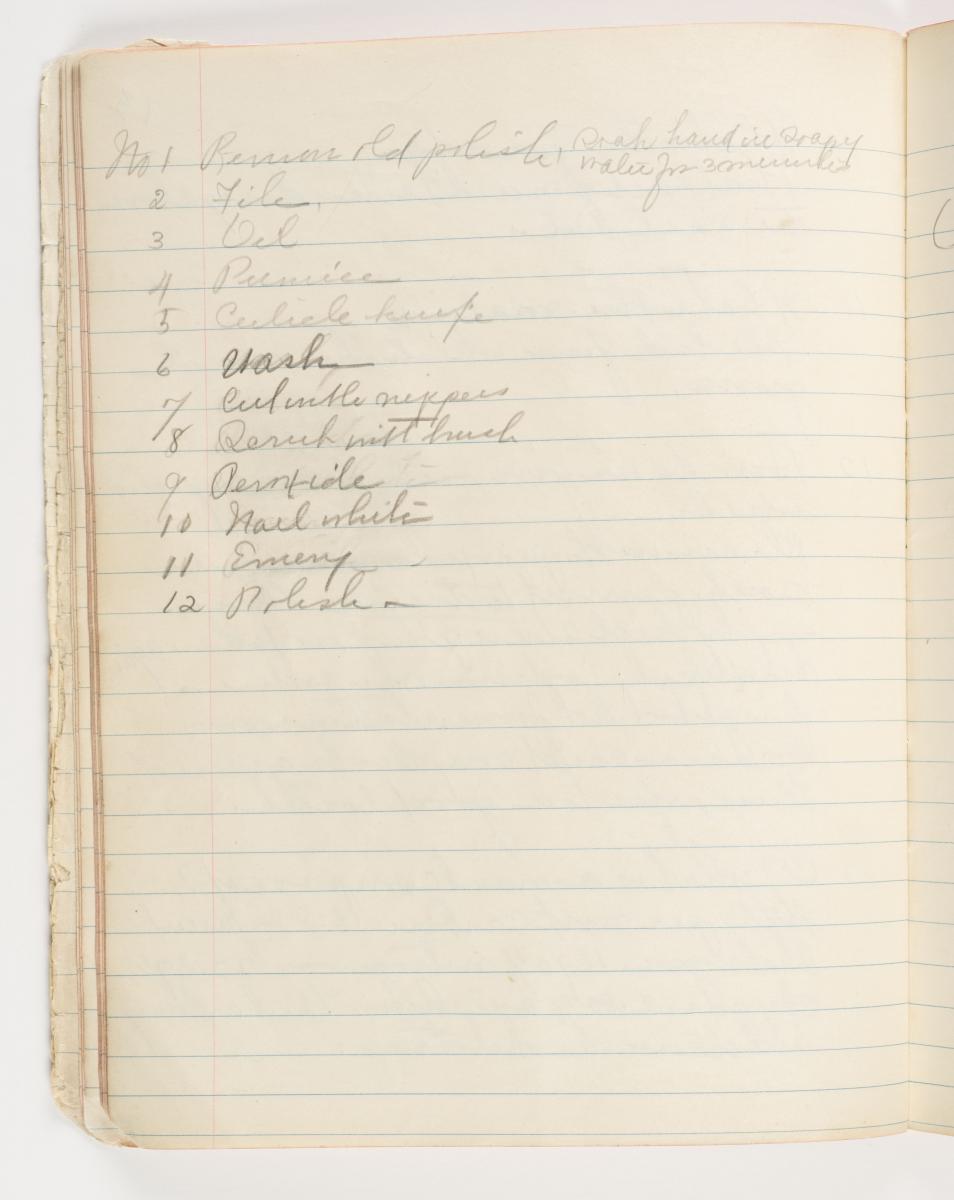 No 1 Remove old polish, Soak hand in soapy
water for 3 minutes
2 File,
3 Oil
4 Pumice
5 Cuticle knife
6 Wash
7 Cut with nippers
8 Scrub with brush
9 Peroxide
10 Nail white
11 Emery -
12 Polish -